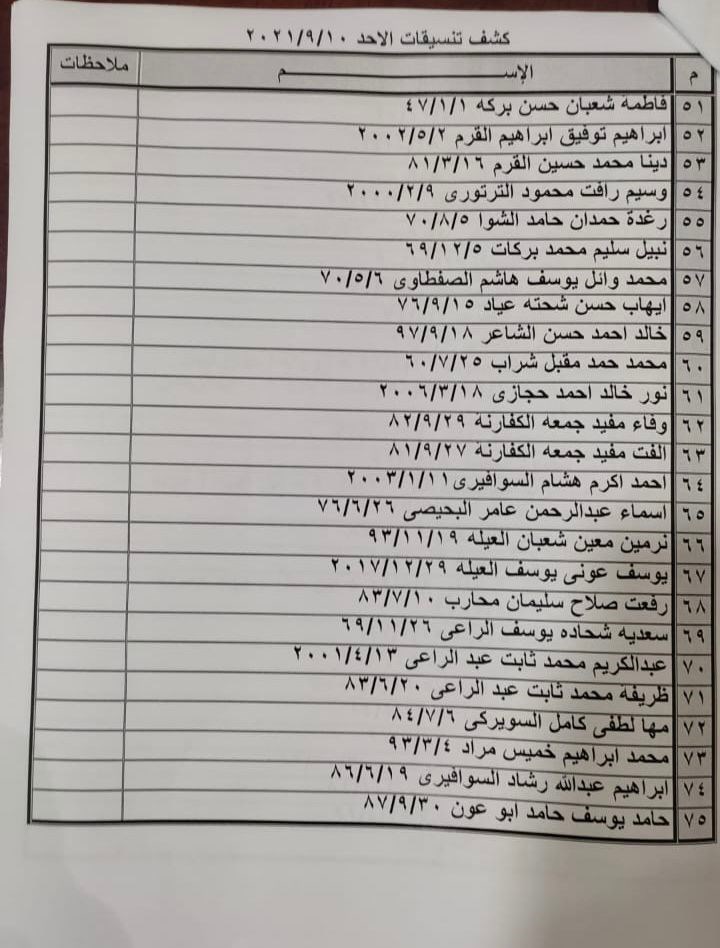 كشف تنسيقات الاحد ٢٠٢١/٩/١٠
م الإســـــــــــم ملاحظات
٥١ فاطمة شعبان حسن بركه ٤٧/١/١
٥٢ ابراهيم توفيق ابراهيم القرم ٢٠٠٢/٥/٢
٥٣ دينا محمد حسين القرم ٨١/٣/١٦
٥٤ وسيم رافت محمود الترتورى ٢٠٠٠/٢/٩
٥٥ رغدة حمدان حامد الشوا ٧٠/٨/٥
٥٦ نبيل سليم محمد بركات ٦٩/١٢/٥
٥٧ محمد وائل يوسف هاشم الصفطاوى ٧٠/٥/٦
٥٨ ايهاب حسن شحته عياد ٧٦/٩/١٥
٥٩ خالد احمد حسن الشاعر ٩٧/٩/١٨
٦٠ محمد حمد مقبل شراب ٦٠/٧/٢٥
٦١ نور خالد احمد حجازى ٢٠٠٦/٣/١٨
٦٢ وفاء مفيد جمعه الكفارنة ٨٢/٩/٢٩
٦٣ الفت مفيد جمعه الكفارنة ٨١/٩/٢٧
٦٤ احمد اكرم هشام السوافيرى ٢٠٠٣/١/١١
٦٥ اسماء عبدالرحمن عامر البحيصى ٧٦/٦/٢٦
٦٦ نرمين معين شعبان العيله ٩٣/١١/١٩
٦٧ يوسف عونى يوسف العيله ٢٠١٧/١٢/٢٩
٦٨ رفعت صلاح سليمان محارب ٨٣/٧/١٠
٦٩ سعديه شحاده يوسف الراعى ٦٩/١١/٢٦
٧٠ عبدالكريم محمد ثابت عبد الراعى ٢٠٠١/٤/١٣
٧١ ظريفه محمد ثابت عبد الراعى ٨٣/٦/٢٠
٧٢ مها لطفى كامل السويركى ٨٤/٧/٦
٧٣ محمد ابراهيم خميس مراد ٩٣/٣/٤
٧٤ ابراهيم عبدالله رشاد السوافيرى ٨٦/٦/١٩
٧٥ حامد يوسف حامد ابو عون ٨٧/٩/٣٠